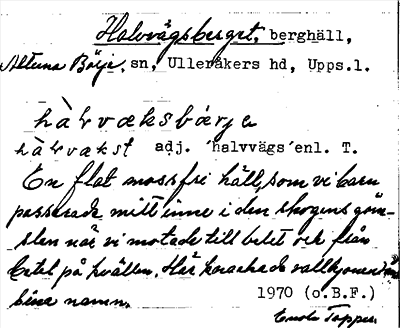 Halvvägsberget, berghäll,
Altuna Börje, sn, Ulleråkers hd, Upps.l.
hàlvæksbárje
hàlvækst adj. 'halvvägs' enl. T.
En flat mossfri häll, som vi barn
passerade mitt inne i den skogens göm-
slen när vi motade till betet och från
betet på kvällen. Här korsade vallhjonen
sina namn.
1970 (o.B.F.)